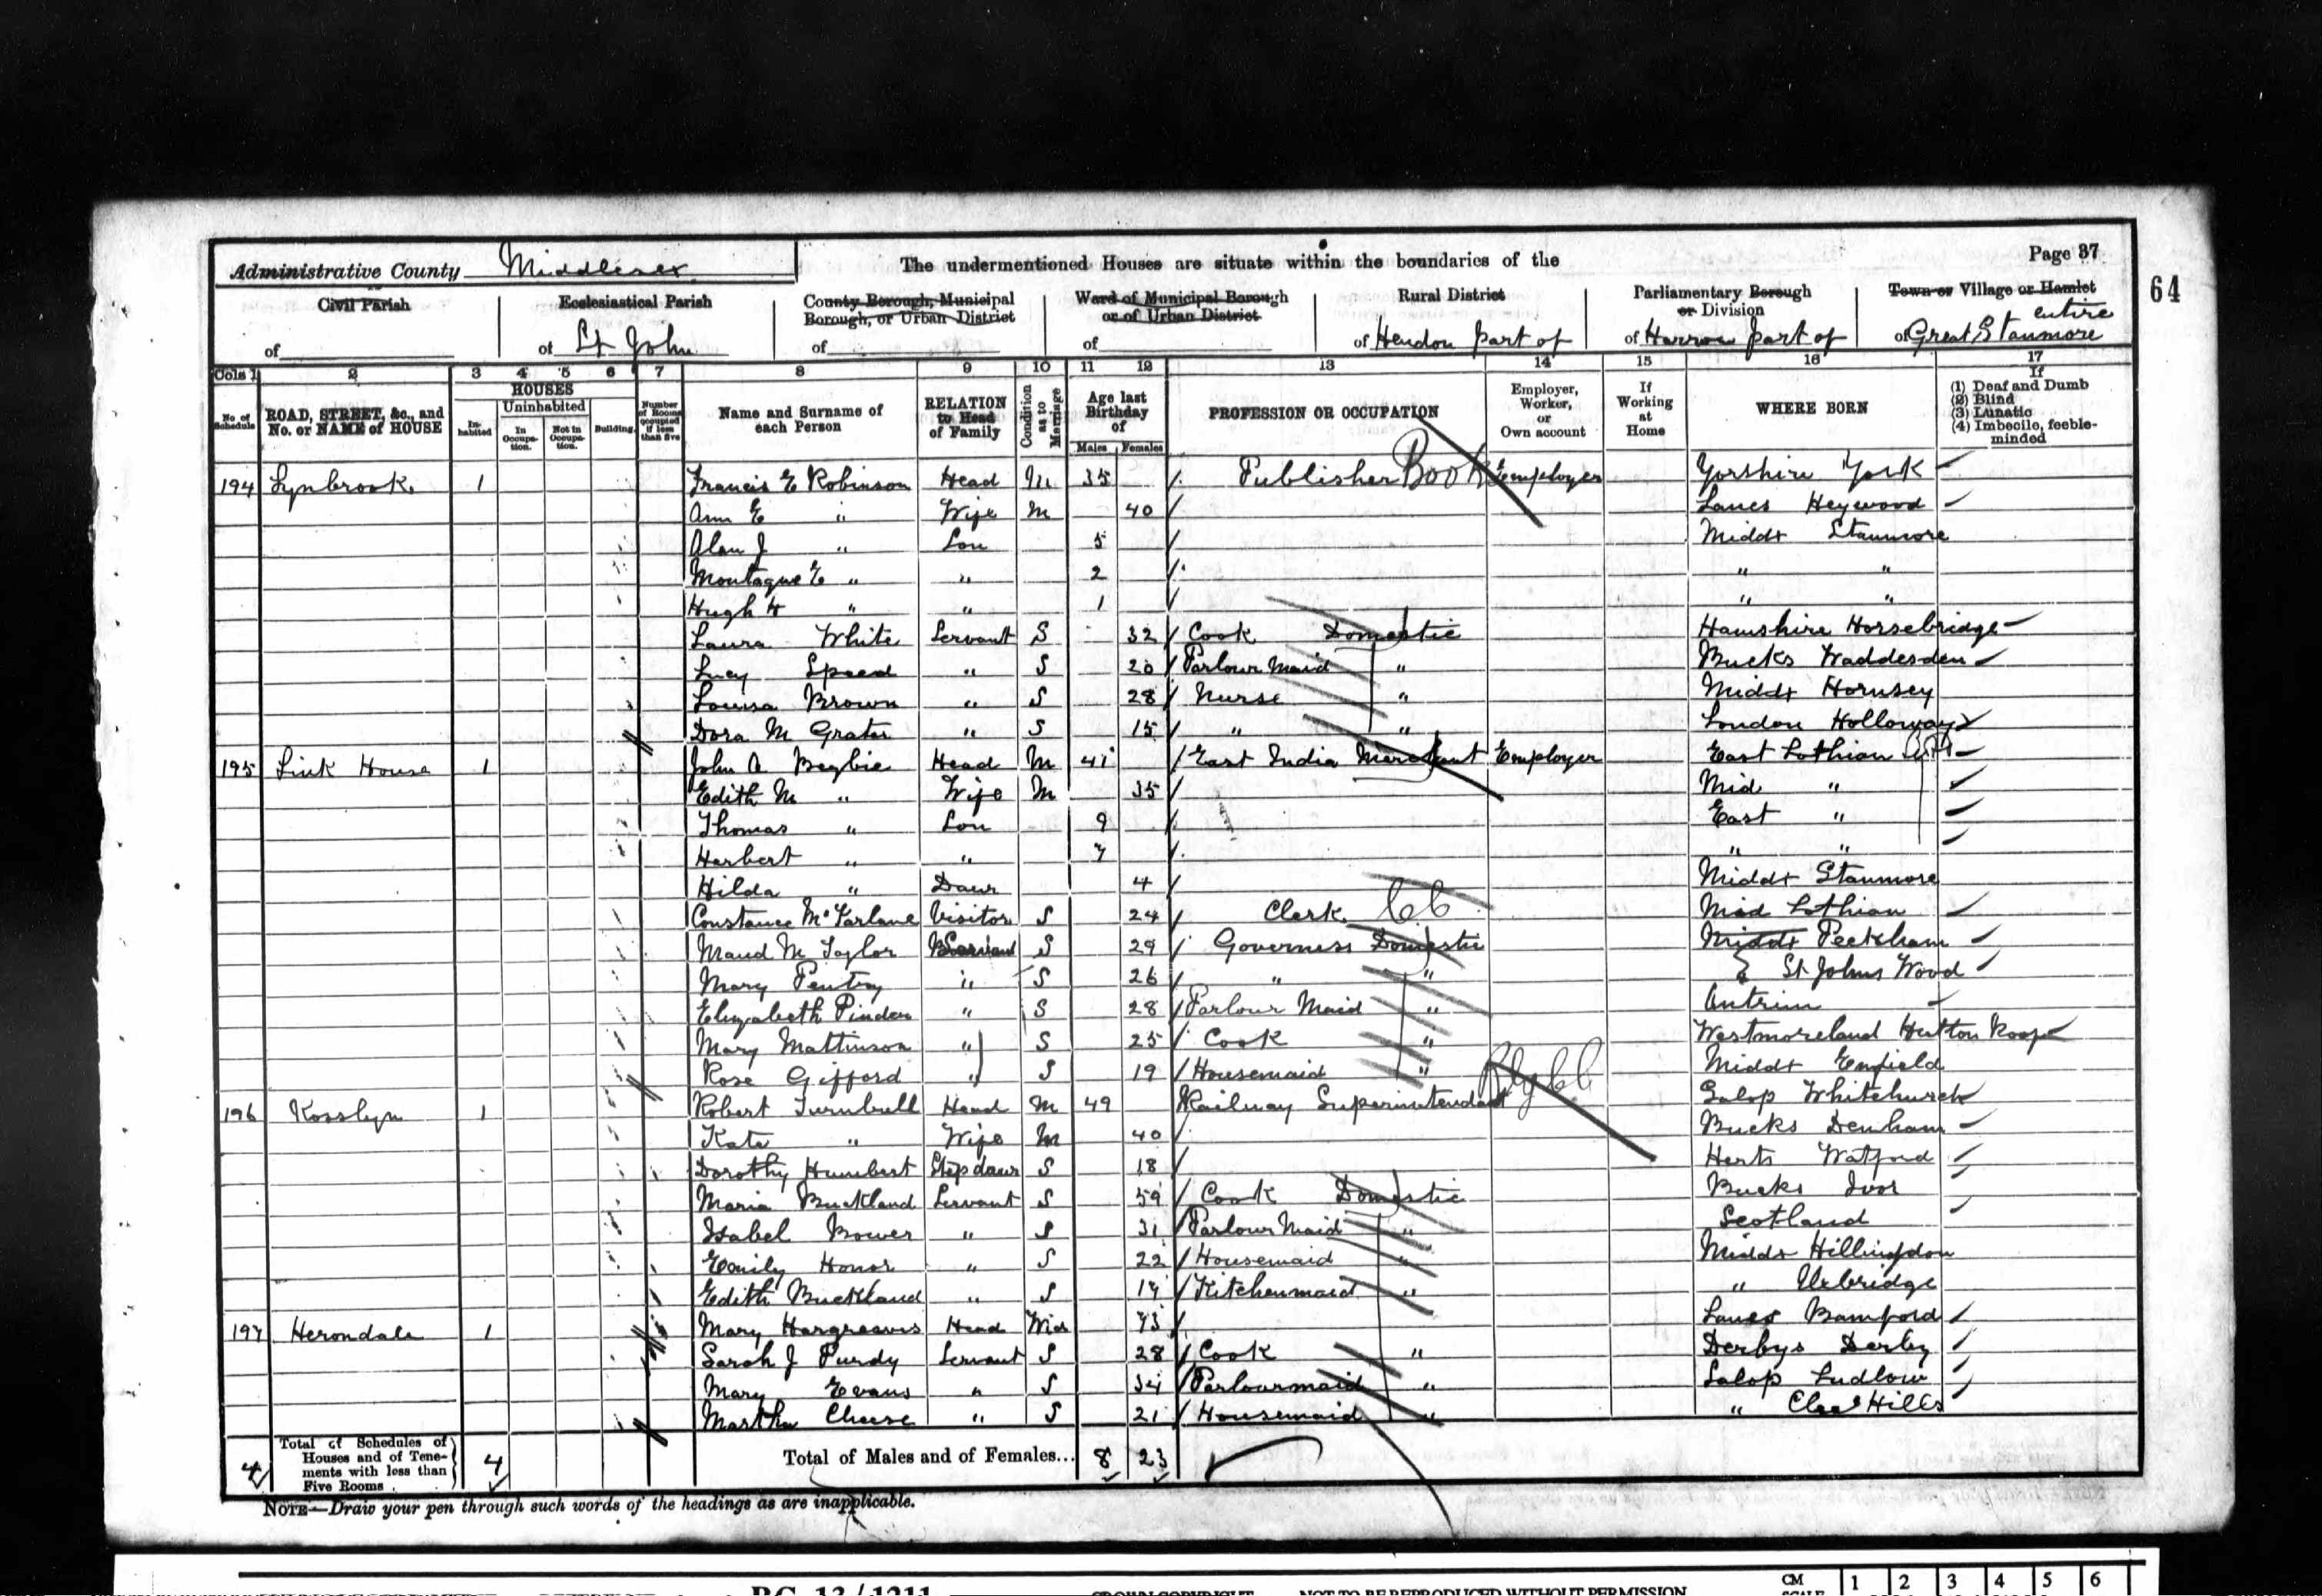 Page 37
64
Administrative County Middlesex
The undermentioned Houses are situate within the boundaries of the
Civil Parish of
Ecclesiastical Parish of St John
County Borough, Municipal Borough, or Urban District of
Ward of Municipal Borough or of Urban District of
Rural District of Hendon part of
Parliamentary Borough or Division of Harrow part of
Town or Village or Hamlet of Great Stanmore entire
Cols 1 2 3 4 5 6 7 8 9 10 11 12 13 14 15 16 17
No. of Schedule
ROAD, STREET, &c., and No. or NAME of HOUSE
HOUSES
In-habited
Uninhabited
In Occupa-tion.
Not in Occupa-tion.
Building
Number of Rooms occupied if less than five
Name and Surname of each Person
RELATION to Head of Family
Condition as to Marriage
Age last Birthday of
Males Females
PROFESSION OR OCCUPATION
Employer, Worker, or Own account
If Working at Home
WHERE BORN
If (1) Deaf and Dumb (2) Blind (3) Lunatic (4) Imbecile, feeble-minded
194 Lynbrook 1 Francis E Robinson Head M 35 Publisher Book Employer Yorshire York
Ann E " Wife M 40 Lancs Heywood
Alan J " Son 5 Middx Stanmore
Montague E " " 2 " "
Hugh H " " 1 " "
Laura White Servant S 32 Cook Domestic Hamshire Horsebridge
Lucy Speed " S 20 Parlour Maid " Bucks Waddesden
Louisa Brown " S 28 Nurse " Middx Hornsey
Dora M Grater " S 15 " " London Holloway
195 Link House 1 John A Begbie Head M 41 East India Merchant Employer East Lothian
Edith M " Wife M 35 Mid "
Thomas " Son 9 East "
Herbert " " 7 " "
Hilda " Daur 4 Middx Stanmore
Constance McFarlane Visitor S 24 Clerk Mid Lothian
Maud M Taylor Servant S 29 Governess Domestic Middx Peckham
Mary " S 26 " " St Johns Wood
Elizabeth Pinder " S 28 Parlour Maid " Antrim
Mary Mattinson " S 25 Cook " Westmoreland Hutton Roof
Rose Gifford " S 19 Housemaid " Middx Enfield
196 Rosslyn 1 Robert Turnbull Head M 49 Railway Superintendant Salop Whitchurch
Kate " Wife M 40 Bucks Denham
Dorothy Humbert Stepdaur S 18 Herts Watford
Maria Buckland Servant S 59 Cook Domestic Bucks Ivor
Isabel Bower " S 31 Parlour Maid " Scotland
Emily Honor " S 22 Housemaid " Middx Hillingdon
Edith Buckland " S Kitchenmaid " " Uxbridge
197 Herondale 1 Mary Hargreaves Head Wid 73 Lancs Bamford
Sarah J Purdy Servant S 28 Cook " Derbys Derby
Mary Evans " S 34 Parlourmaid " Salop Ludlow
Martha Cheese " S 21 Housemaid " " Clee Hills
4 Total of Schedules of Houses and of Tene-ments with less than Five Rooms 4 Total of Males and of Females... 8 23
NOTE—Draw your pen through such words of the headings as are inapplicable.
CM 1 2 3 4 5 6